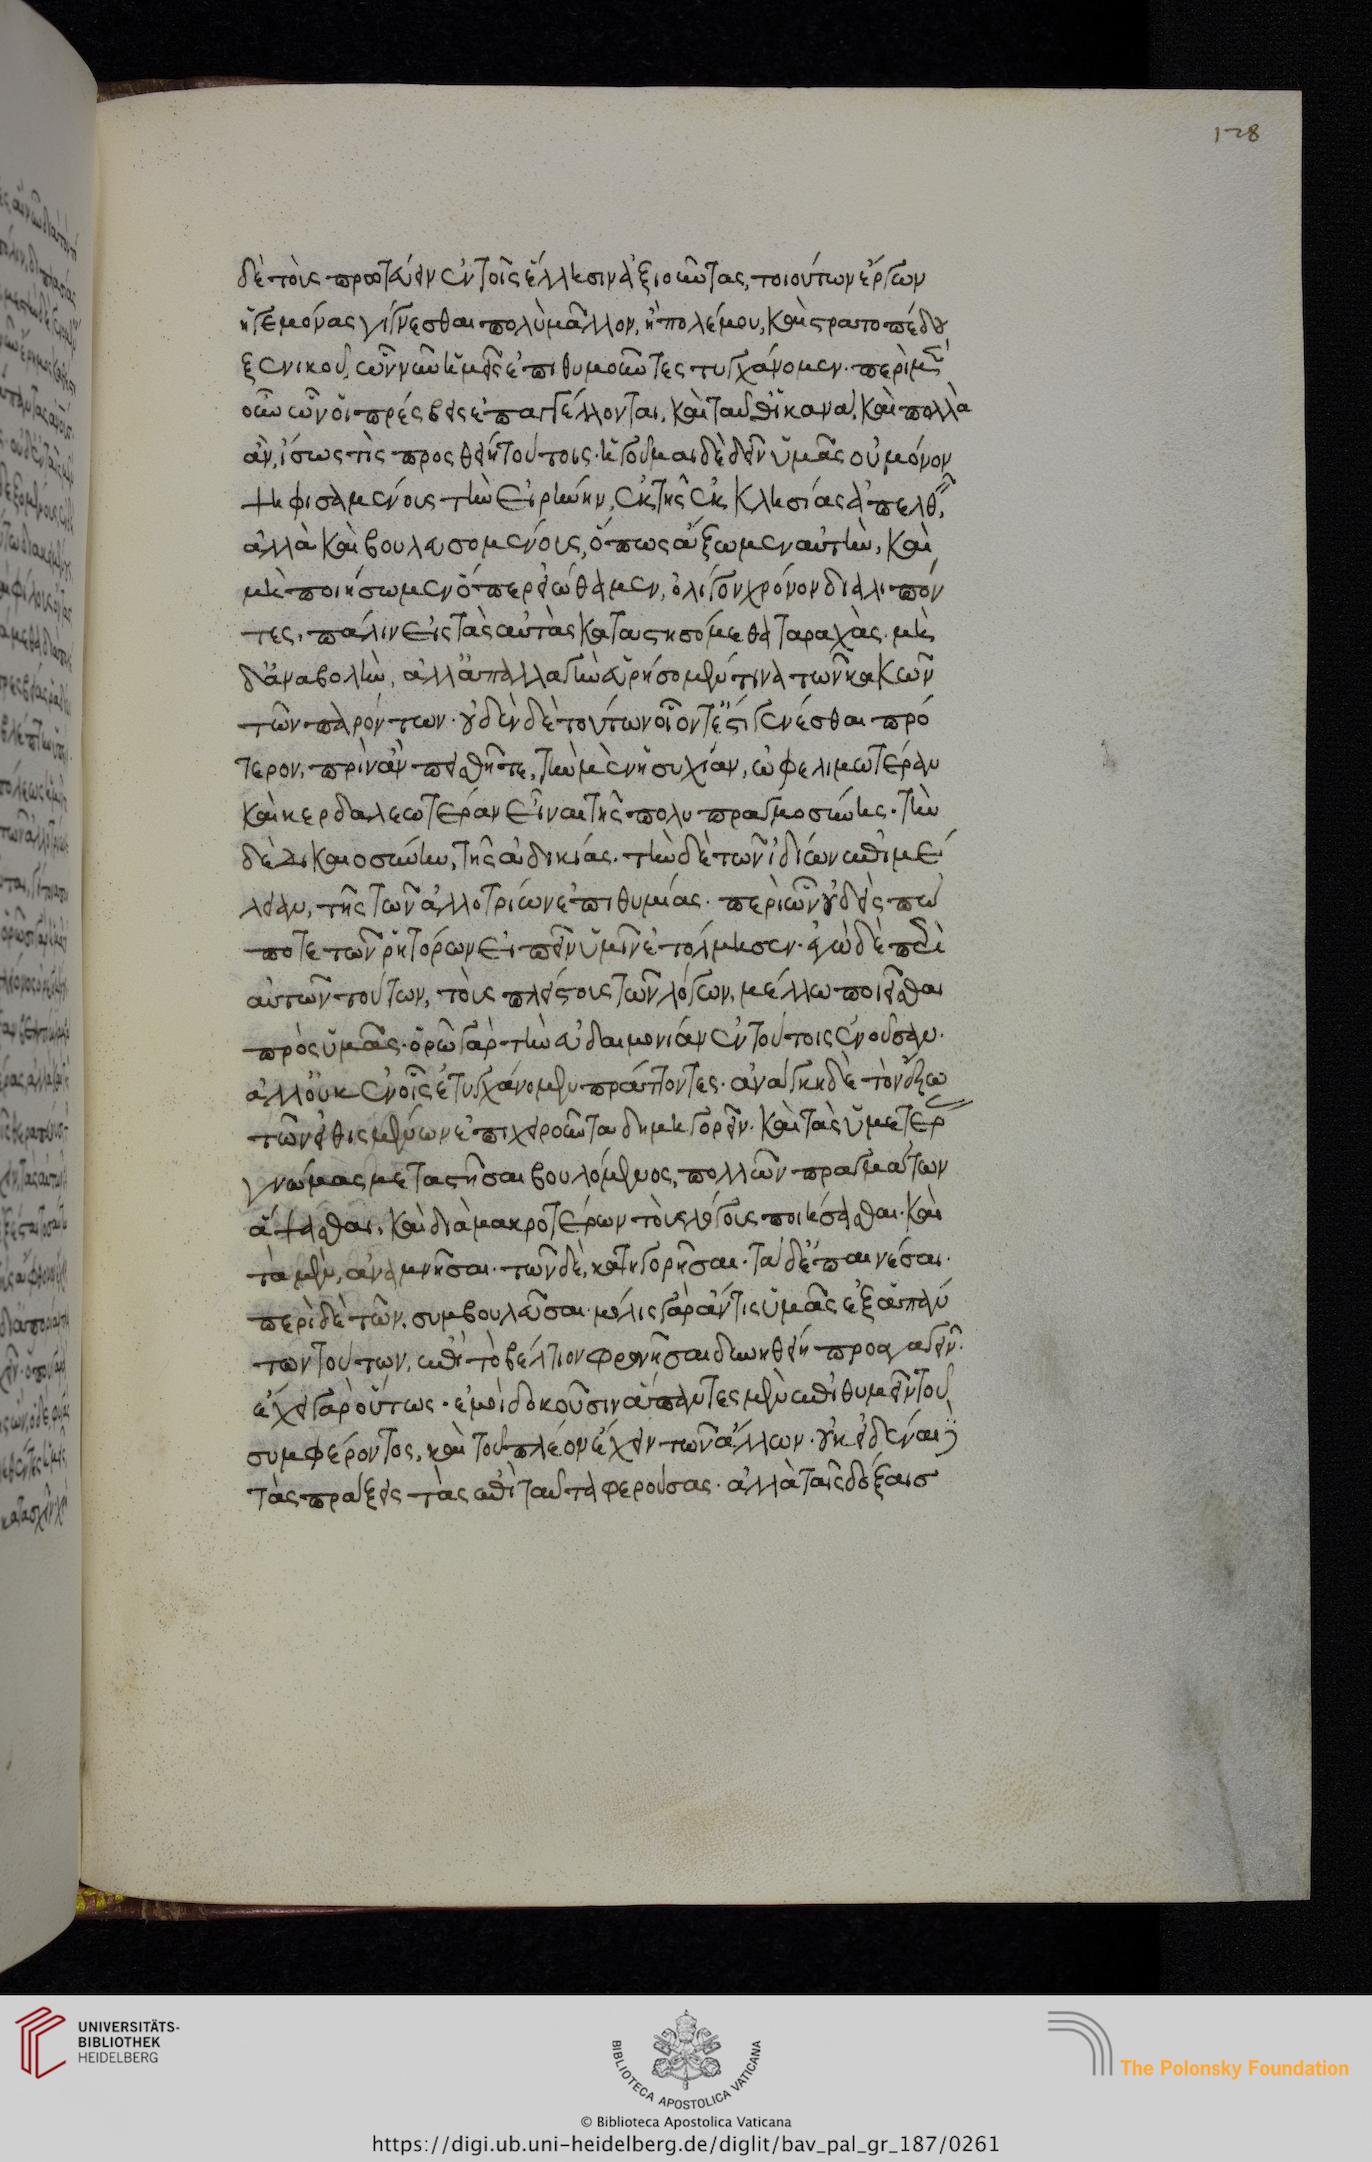 128
δὲ τοὺς πρωτεύειν ἐν τοῖς ἕλλησιν ἀξιοῦντας, τοιούτων ἔργων
ἡγεμόνας γίγνεσθαι πολὺ μᾶλλον, ἢ πολέμου, καὶ στρατοπέδου
ξενικοῦ, ὧν νῦν ἡμεῖς ἐπιθυμοῦντες τυγχάνομεν. περὶ μὲν
οὖν ὧν οἱ πρέσβεις ἐπαγγέλλονται, καὶ ταῦθ' ἱκανά, καὶ πολλὰ
ἂν, ἴσως τὶς προσθείη τούτοις. ἡγοῦμαι δὲ δεῖν ὑμᾶς οὐ μόνον
ψηφισαμένους τὴν εἰρήνην, ἐκ τῆς ἐκκλησίας ἀπελθεῖν,
ἀλλὰ καὶ βουλευσομένους, ὅπως ἄξωμεν αὐτὴν, καὶ
μὴ ποιήσωμεν ὅπερ εἰώθαμεν, ὀλίγον χρόνον διαλιπόν
τες, πάλιν εἰς τὰς αὐτὰς καταστησόμεθα ταραχὰς. μὴ
δ' ἀναβολὴν, ἀλλ' ἀπαλλαγὴν εὑρήσομέν τινα τῶν κακῶν
τῶν παρόντων. οὐδὲν δὲ τούτων οἷόν τέ ἐστι γενέσθαι πρό
τερον, πρὶν ἂν πεισθῆτε, τὴν μὲν ἡσυχίαν, ὠφελιμωτέραν
καὶ κερδαλεωτέραν εἶναι τῆς πολυπραγμοσύνης. τὴν
δὲ δικαιοσύνην, τῆς ἀδικίας. τὴν δὲ τῶν ἰδίων ἐπιμέ
λειαν, τῆς τῶν ἀλλοτρίων ἐπιθυμίας. περὶ ὧν οὐδεὶς πώ
ποτε τῶν ῥητόρων εἰπεῖν ὑμῖν ἐτόλμησεν. ἐγὼ δὲ περὶ
αὐτῶν τούτων, τοὺς πλείστους τῶν λόγων, μέλλω ποιεῖσθαι
πρὸς ὑμᾶς. ὁρῶ γὰρ τὴν εὐδαιμονίαν ἐν τούτοις ἐνοῦσαν.
ἀλλ' οὐκ ἐν οἷς ἐτυγχάνομεν πράττοντες. ἀνάγκη δὲ τὸν ἔξω
τῶν εἰθισμένων ἐπιχειροῦντα δημηγορεῖν. καὶ τὰς ὑμετέρας
γνώμας μεταστῆσαι βουλόμενος, πολλῶν πραγμάτων
ἅψασθαι, καὶ διὰ μακροτέρων τοὺς λόγους ποιήσασθαι. καὶ
τὰ μὲν, ἀναμνῆσαι. τῶν δὲ, κατηγορῆσαι. τὰ δ' ἐπαινέσαι.
περὶ δὲ τῶν, συμβουλεῦσαι. μόλις γὰρ ἄν τις ὑμᾶς ἐξ ἁπάν
των τούτων, ἐπὶ τὸ βέλτιον φρονῆσαι δυνηθείη προαγαγεῖν.
ἔχει γὰρ οὕτως. ἐμοὶ δοκοῦσιν ἅπαντες μὲν ἐπιθυμεῖν τοῦ
συμφέροντος, καὶ τοῦ πλέον ἔχειν τῶν ἄλλων. οὐκ εἰδέναι δὲ
τὰς πράξεις τὰς ἐπὶ ταῦτα φερούσας. ἀλλὰ ταῖς δόξαις
UNIVERSITÄTS-
BIBLIOTHEK
HEIDELBERG
BIBLIOTECA APOSTOLICA VATICANA
The Polonsky Foundation
© Biblioteca Apostolica Vaticana
https://digi.ub.uni-heidelberg.de/diglit/bav_pal_gr_187/0261